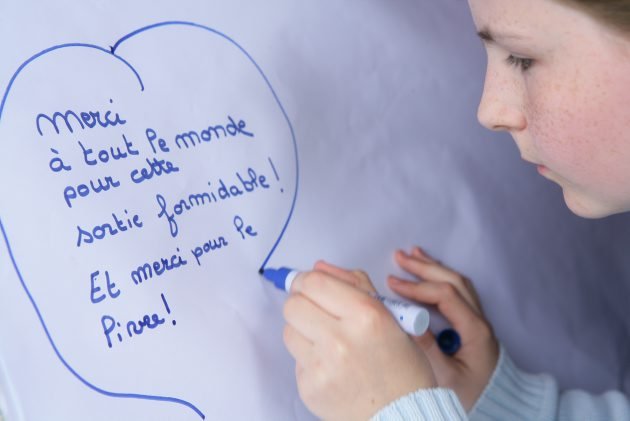 Merci
à tout le monde
pour cette
sortie formidable!
Et merci pour le
livre!